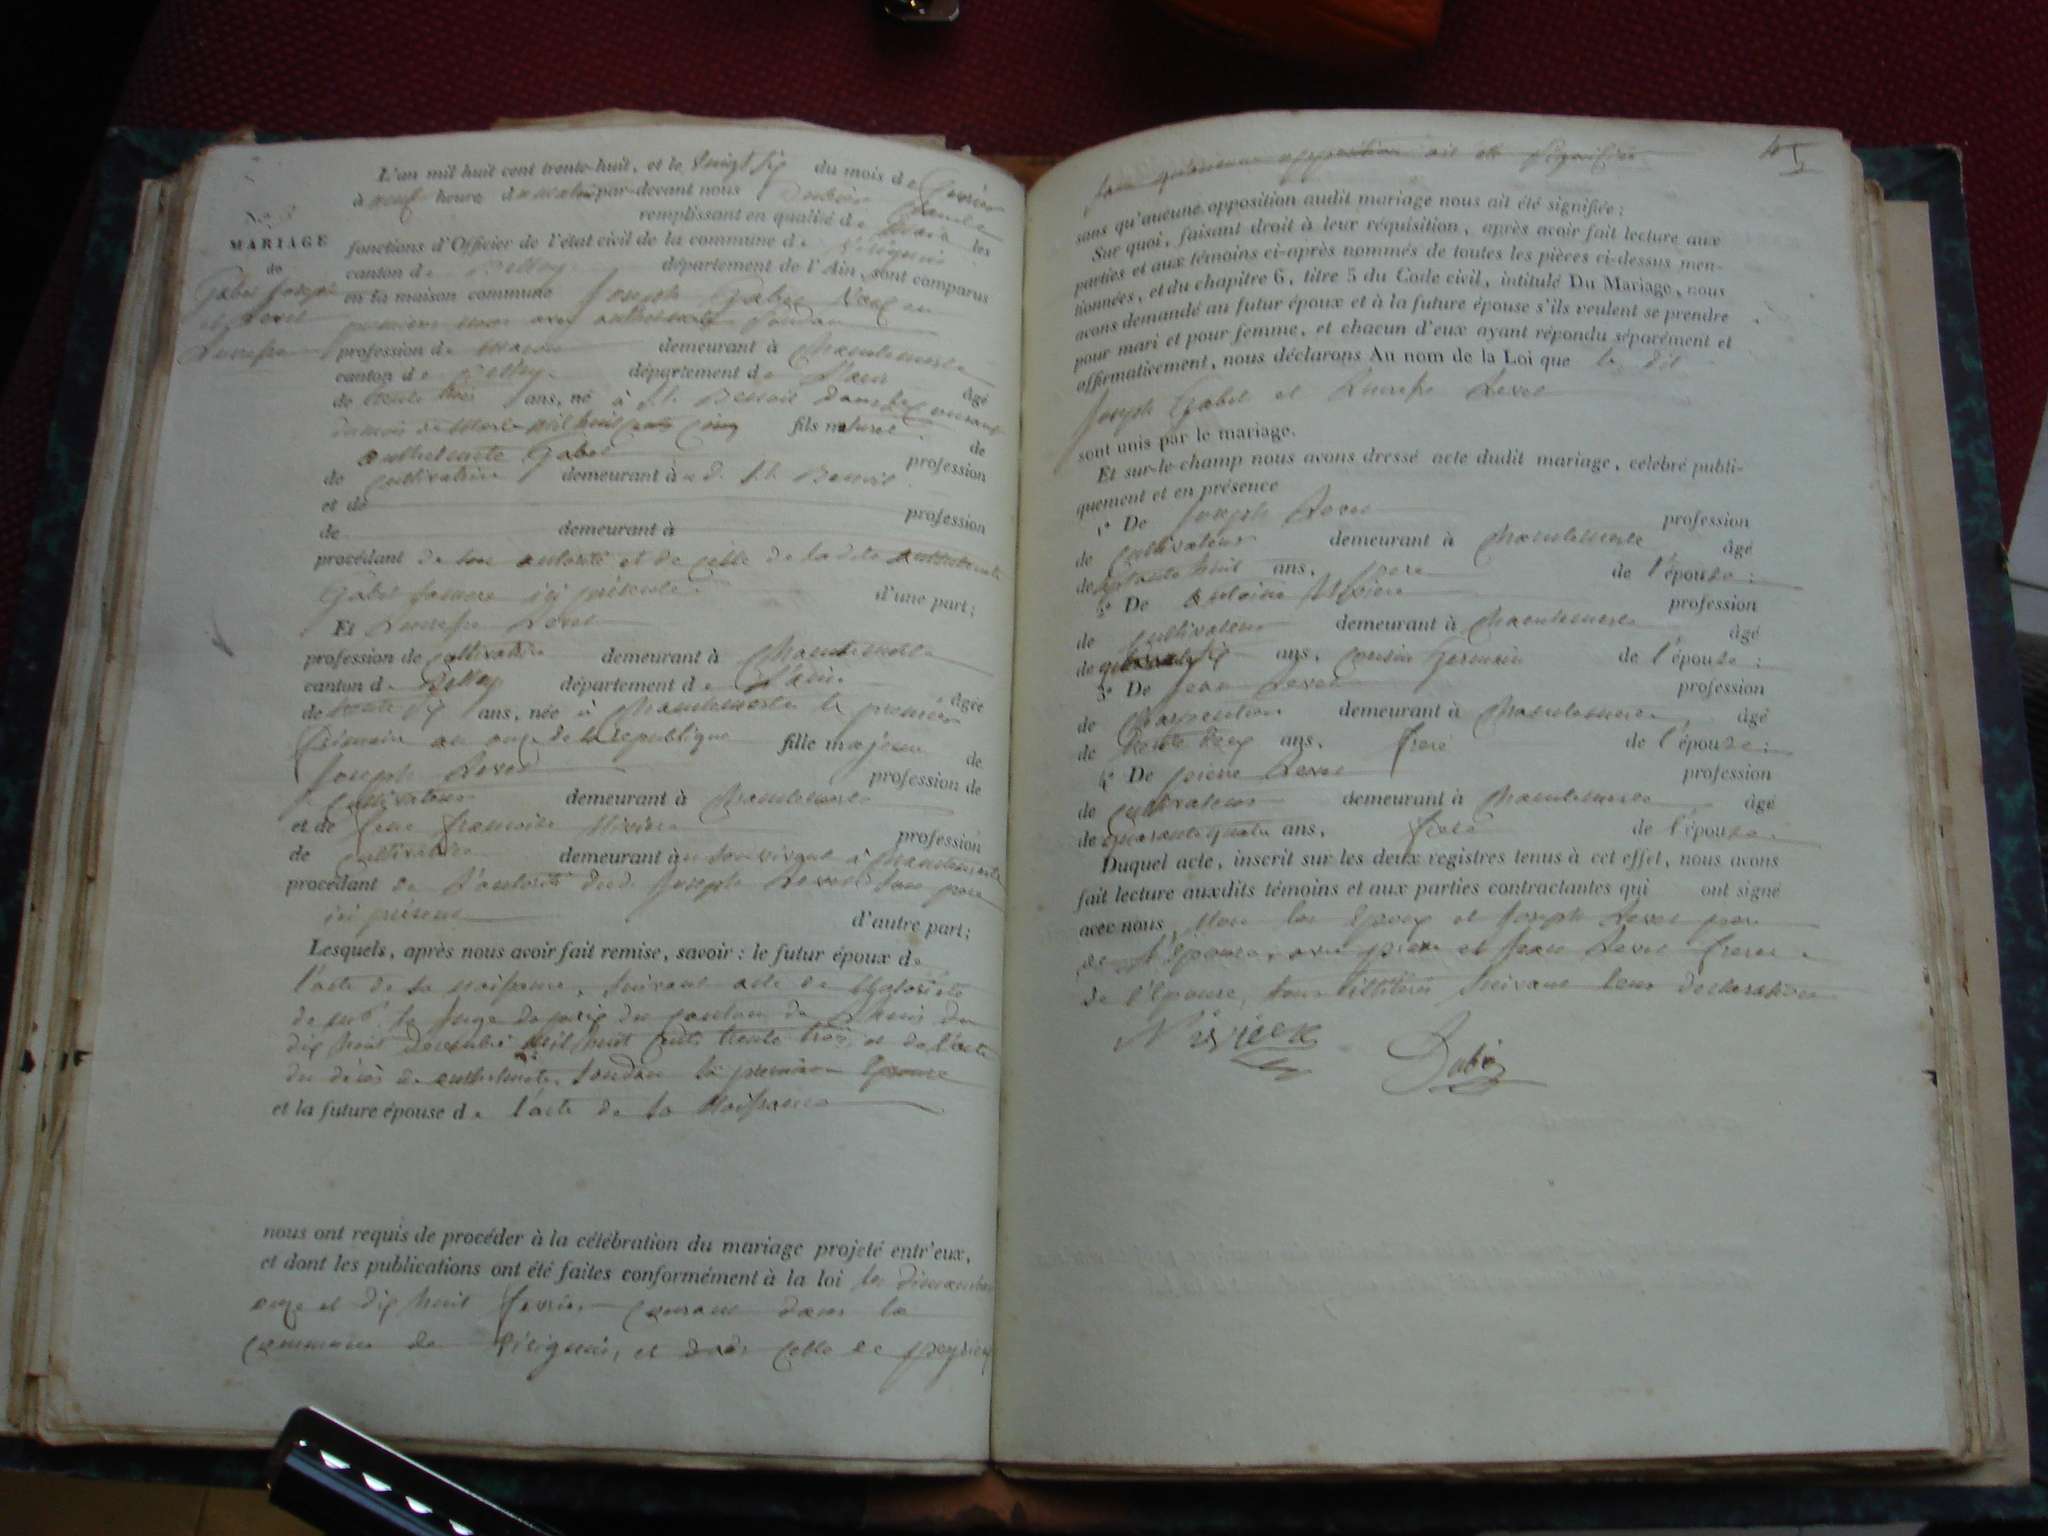 L'an mil huit cent trente-huit, et le vingt six du mois de fevrier
à neuf heure du matin par-devant nous Dubiez
remplissant en qualité de Maire les
No.
MARIAGE
de
Gabet Joseph
et Revel
Lucresse
fonctions d'Officier de l'état civil de la commune de
canton de Belley département de l'Ain, sont comparus
en la maison commune Joseph Gabet Veuf en
premiere noces avec anthelmette Soudan
profession de maçon demeurant à Chantemerle
canton de Belley département de l'ain âgé
de trente trois ans, né à St. Benoit dans le courant
du mois de Mars mil huit cent cinq fils naturel de
anthelmette Gabet profession
de cultivatrice demeurant à St. Benoit
et de profession
de demeurant à
procédant de son autorité et de celle de ladite anthelmette
Gabet sa mere ici présente d'une part;
Et Lucresse Revel
profession de cultivatrice demeurant à Chantemerle
canton de Belley département de l'ain âgée
de trente six ans, née à Chantemerle le premier
frimaire an onze de la republique fille majeure de
Joseph Revel profession de
cultivateur demeurant à Chantemerle
et de feue francoise profession
de cultivatrice demeurant à en son vivant à Chantemerle
procédant de l'autorité dudit Joseph Revel son pere
ici présent d'autre part;
Lesquels, après nous avoir fait remise, savoir: le futur époux de
l'acte de sa naissance, suivant acte de Notoriété
de le juge de paix du canton de du
dix huit decembre mil huit cent trente trois, et de l'acte
du décès de anthelmette Soudan sa premiere Epouse
et la future épouse de l'acte de sa Naissance
nous ont requis de procéder à la célébration du mariage projeté entr'eux,
et dont les publications ont été faites conformément à la loi les dimanches
onze et dix huit fevrier courant dans la
commune de et dans celle de peyrieu
sans qu'aucune opposition ait été signifiée
sans qu'aucune opposition audit mariage nous ait été signifiée;
Sur quoi, faisant droit à leur réquisition, après avoir fait lecture aux
parties et aux témoins ci-après nommés de toutes les pièces ci-dessus men-
tionnées, et du chapitre 6, titre 5 du Code civil, intitulé Du Mariage, nous
avons demandé au futur époux et à la future épouse s'ils veulent se prendre
pour mari et pour femme, et chacun d'eux ayant répondu séparément et
affirmativement, nous déclarons Au nom de la Loi que les dit
Joseph Gabet et Lucresse Revel
sont unis par le mariage.
Et sur-le-champ nous avons dressé acte dudit mariage, célébré publi-
quement et en présence
1° De Joseph Revel profession
de cultivateur demeurant à Chantemerle âgé
de septante huit ans, pere de l'épouse;
2° De antoine profession
de cultivateur demeurant à Chantemerle âgé
de ans, cousin Germain de l'épouse;
3° De Jean Revel profession
de charpentier demeurant à Chantemerle âgé
de trente deux ans, frere de l'épouse;
4° De pierre Revel profession
de cultivateur demeurant à Chantemerle âgé
de quarante quatre ans, frere de l'épouse
Duquel acte, inscrit sur les deux registres tenus à cet effet, nous avons
fait lecture auxdits témoins et aux parties contractantes qui ont signé
avec nous, Non les époux et Joseph Revel pere
de l'épouse, avec pierre et Jean Revel freres
de l'Epouse, tous illiterés suivant leur declaration